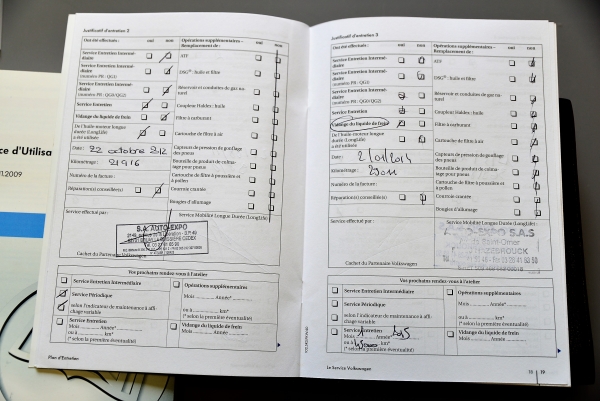 Justificatif d'entretien 2
Ont été effectués : oui non
Service Entretien Intermé-
diaire
Service Entretien Intermé-
diaire
(numéro PR : QG1)
Service Entretien Intermé-
diaire
(numéro PR : QG0/QG2)
Service Entretien
Vidange du liquide de frein
De l'huile moteur longue
durée (LongLife)
a été utilisée
Date : 22 octobre 2012
Kilométrage : 21916
Numéro de la facture :
Réparation(s) conseillée(s)
Opérations supplémentaires – oui non
Remplacement de :
ATF
DSG® : huile et filtre
Réservoir et conduites de gaz na-
turel
Coupleur Haldex : huile
Filtre à carburant
Cartouche de filtre à air
Capteurs de pression de gonflage
des pneus
Bouteille de produit de colma-
tage pour pneus
Cartouche de filtre à poussière et
à pollen
Courroie crantée
Bougies d'allumage
Service effectué par : Service Mobilité Longue Durée (LongLife) :
S.A. AUTO-EXPO
Cachet du Partenaire Volkswagen
Vos prochains rendez-vous à l'atelier
Service Entretien Intermédiaire
Service Périodique
selon l'indicateur de maintenance à affi-
chage variable
Service Entretien
Mois Année*
ou à km*
(* selon la première éventualité)
Opérations supplémentaires
Mois Année*
ou à km*
(* selon la première éventualité)
Vidange du liquide de frein:
Mois Année
Plan d'Entretien
Justificatif d'entretien 3
Ont été effectués : oui non
Service Entretien Intermé-
diaire
Service Entretien Intermé-
diaire
(numéro PR : QG1)
Service Entretien Intermé-
diaire
(numéro PR : QG0/QG2)
Service Entretien
Vidange du liquide de frein
De l'huile moteur longue
durée (LongLife)
a été utilisée
Date :
Kilométrage :
Numéro de la facture :
Réparation(s) conseillée(s)
Opérations supplémentaires – oui non
Remplacement de :
ATF
DSG® : huile et filtre
Réservoir et conduites de gaz na-
turel
Coupleur Haldex : huile
Filtre à carburant
Cartouche de filtre à air
Capteurs de pression de gonflage
des pneus
Bouteille de produit de colma-
tage pour pneus
Cartouche de filtre à poussière et
à pollen
Courroie crantée
Bougies d'allumage
Service effectué par : Service Mobilité Longue Durée (LongLife) :
AUTO-EXPO S.A.S
HAZEBROUCK
Cachet du Partenaire Volkswagen
Vos prochains rendez-vous à l'atelier
Service Entretien Intermédiaire
Service Périodique
selon l'indicateur de maintenance à affi-
chage variable
Service Entretien
Mois Année
ou à km*
(* selon la première éventualité)
Opérations supplémentaires
Mois Année*
ou à km*
(* selon la première éventualité)
Vidange du liquide de frein:
Mois Année
Le Service Volkswagen
18 19
ce d'Utilisa
.2009